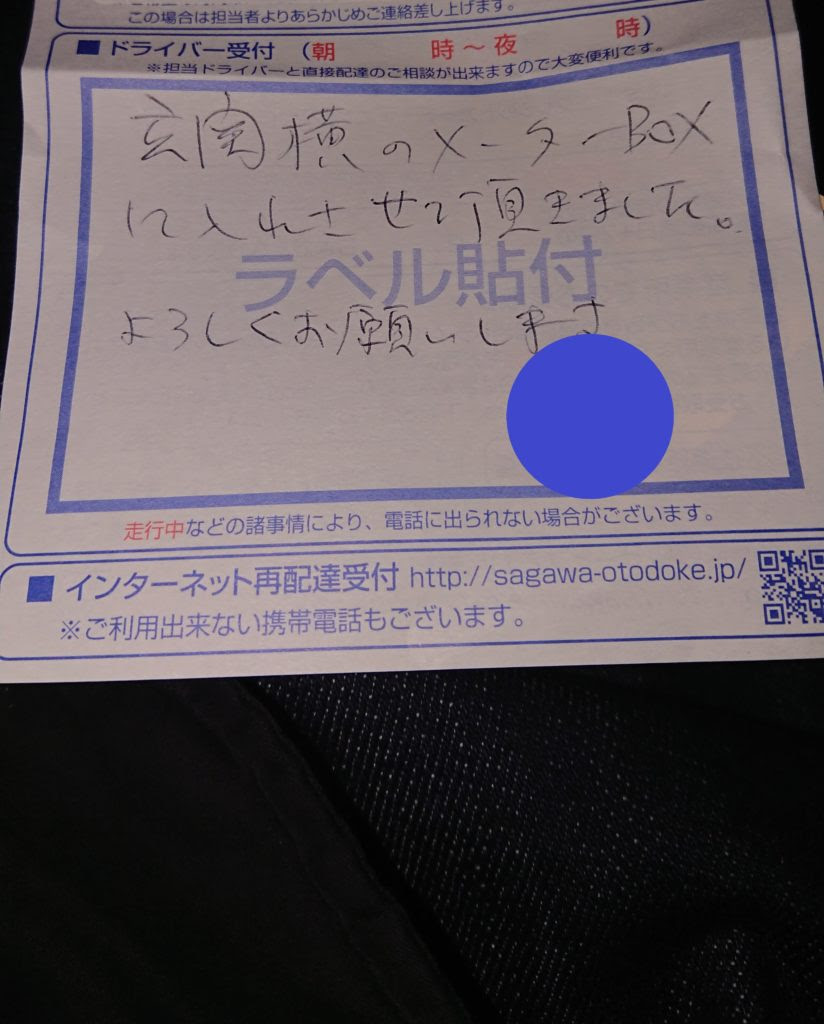 この場合は担当者よりあらかじめご連絡差し上げます。
■ドライバー受付 （朝　　時～夜　　時）
※担当ドライバーと直接配達のご相談が出来ますので大変便利です。
玄関横のメーターBOX
に入れさせて頂きました。
ラベル貼付
よろしくお願いします
走行中などの諸事情により、電話に出られない場合がございます。
■インターネット再配達受付 http://sagawa-otodoke.jp/
※ご利用出来ない携帯電話もございます。